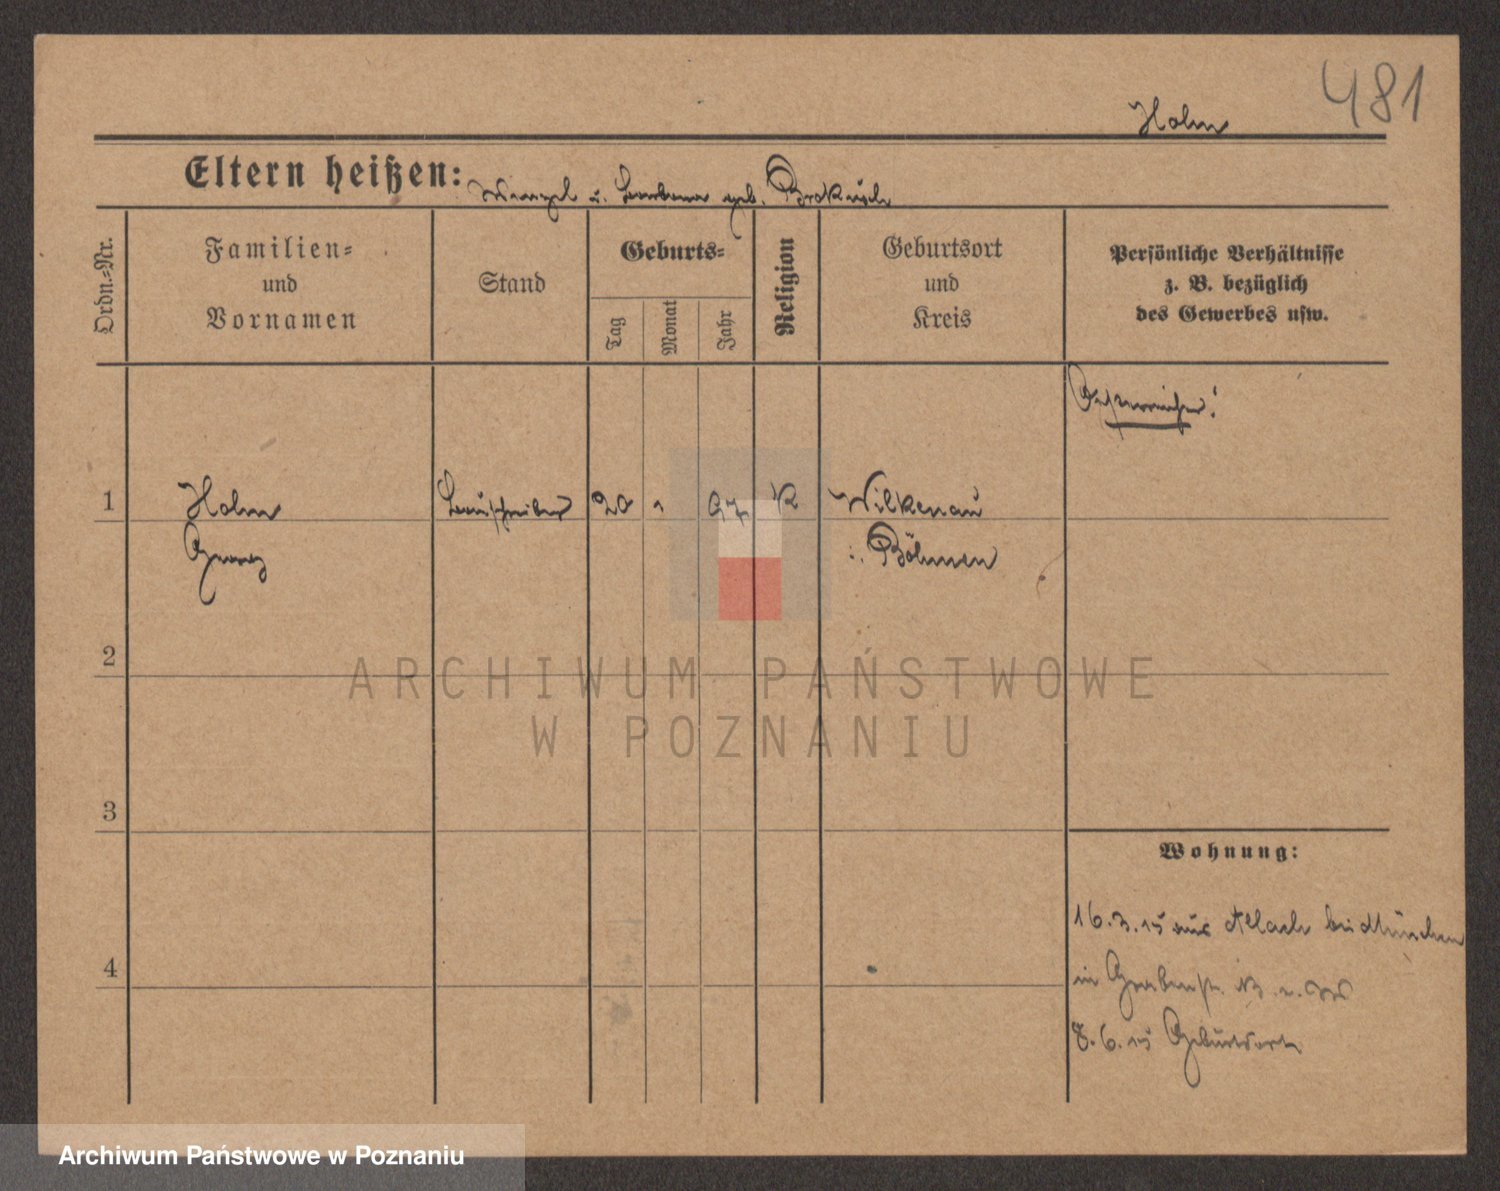 481
Holm
Eltern heißen: Wenzel u. Barbara geb. Prokusch
Ordn.-Nr.
Familien-
und
Vornamen
Stand
Geburts-
Tag
Monat
Jahr
Religion
Geburtsort
und
Kreis
Persönliche Verhältnisse
z. B. bezüglich
des Gewerbes usw.
Österreicher!
1
Holm
Georg
Bauschreiber
20
1
97
K
Wilkenau
i. Böhmen
2
ARCHIWUM PAŃSTWOWE
W POZNANIU
3
Wohnung:
16.3.15 aus Allach bei München
4
in Grabenstr.
8.6.15 Geburtsort
Archiwum Państwowe w Poznaniu